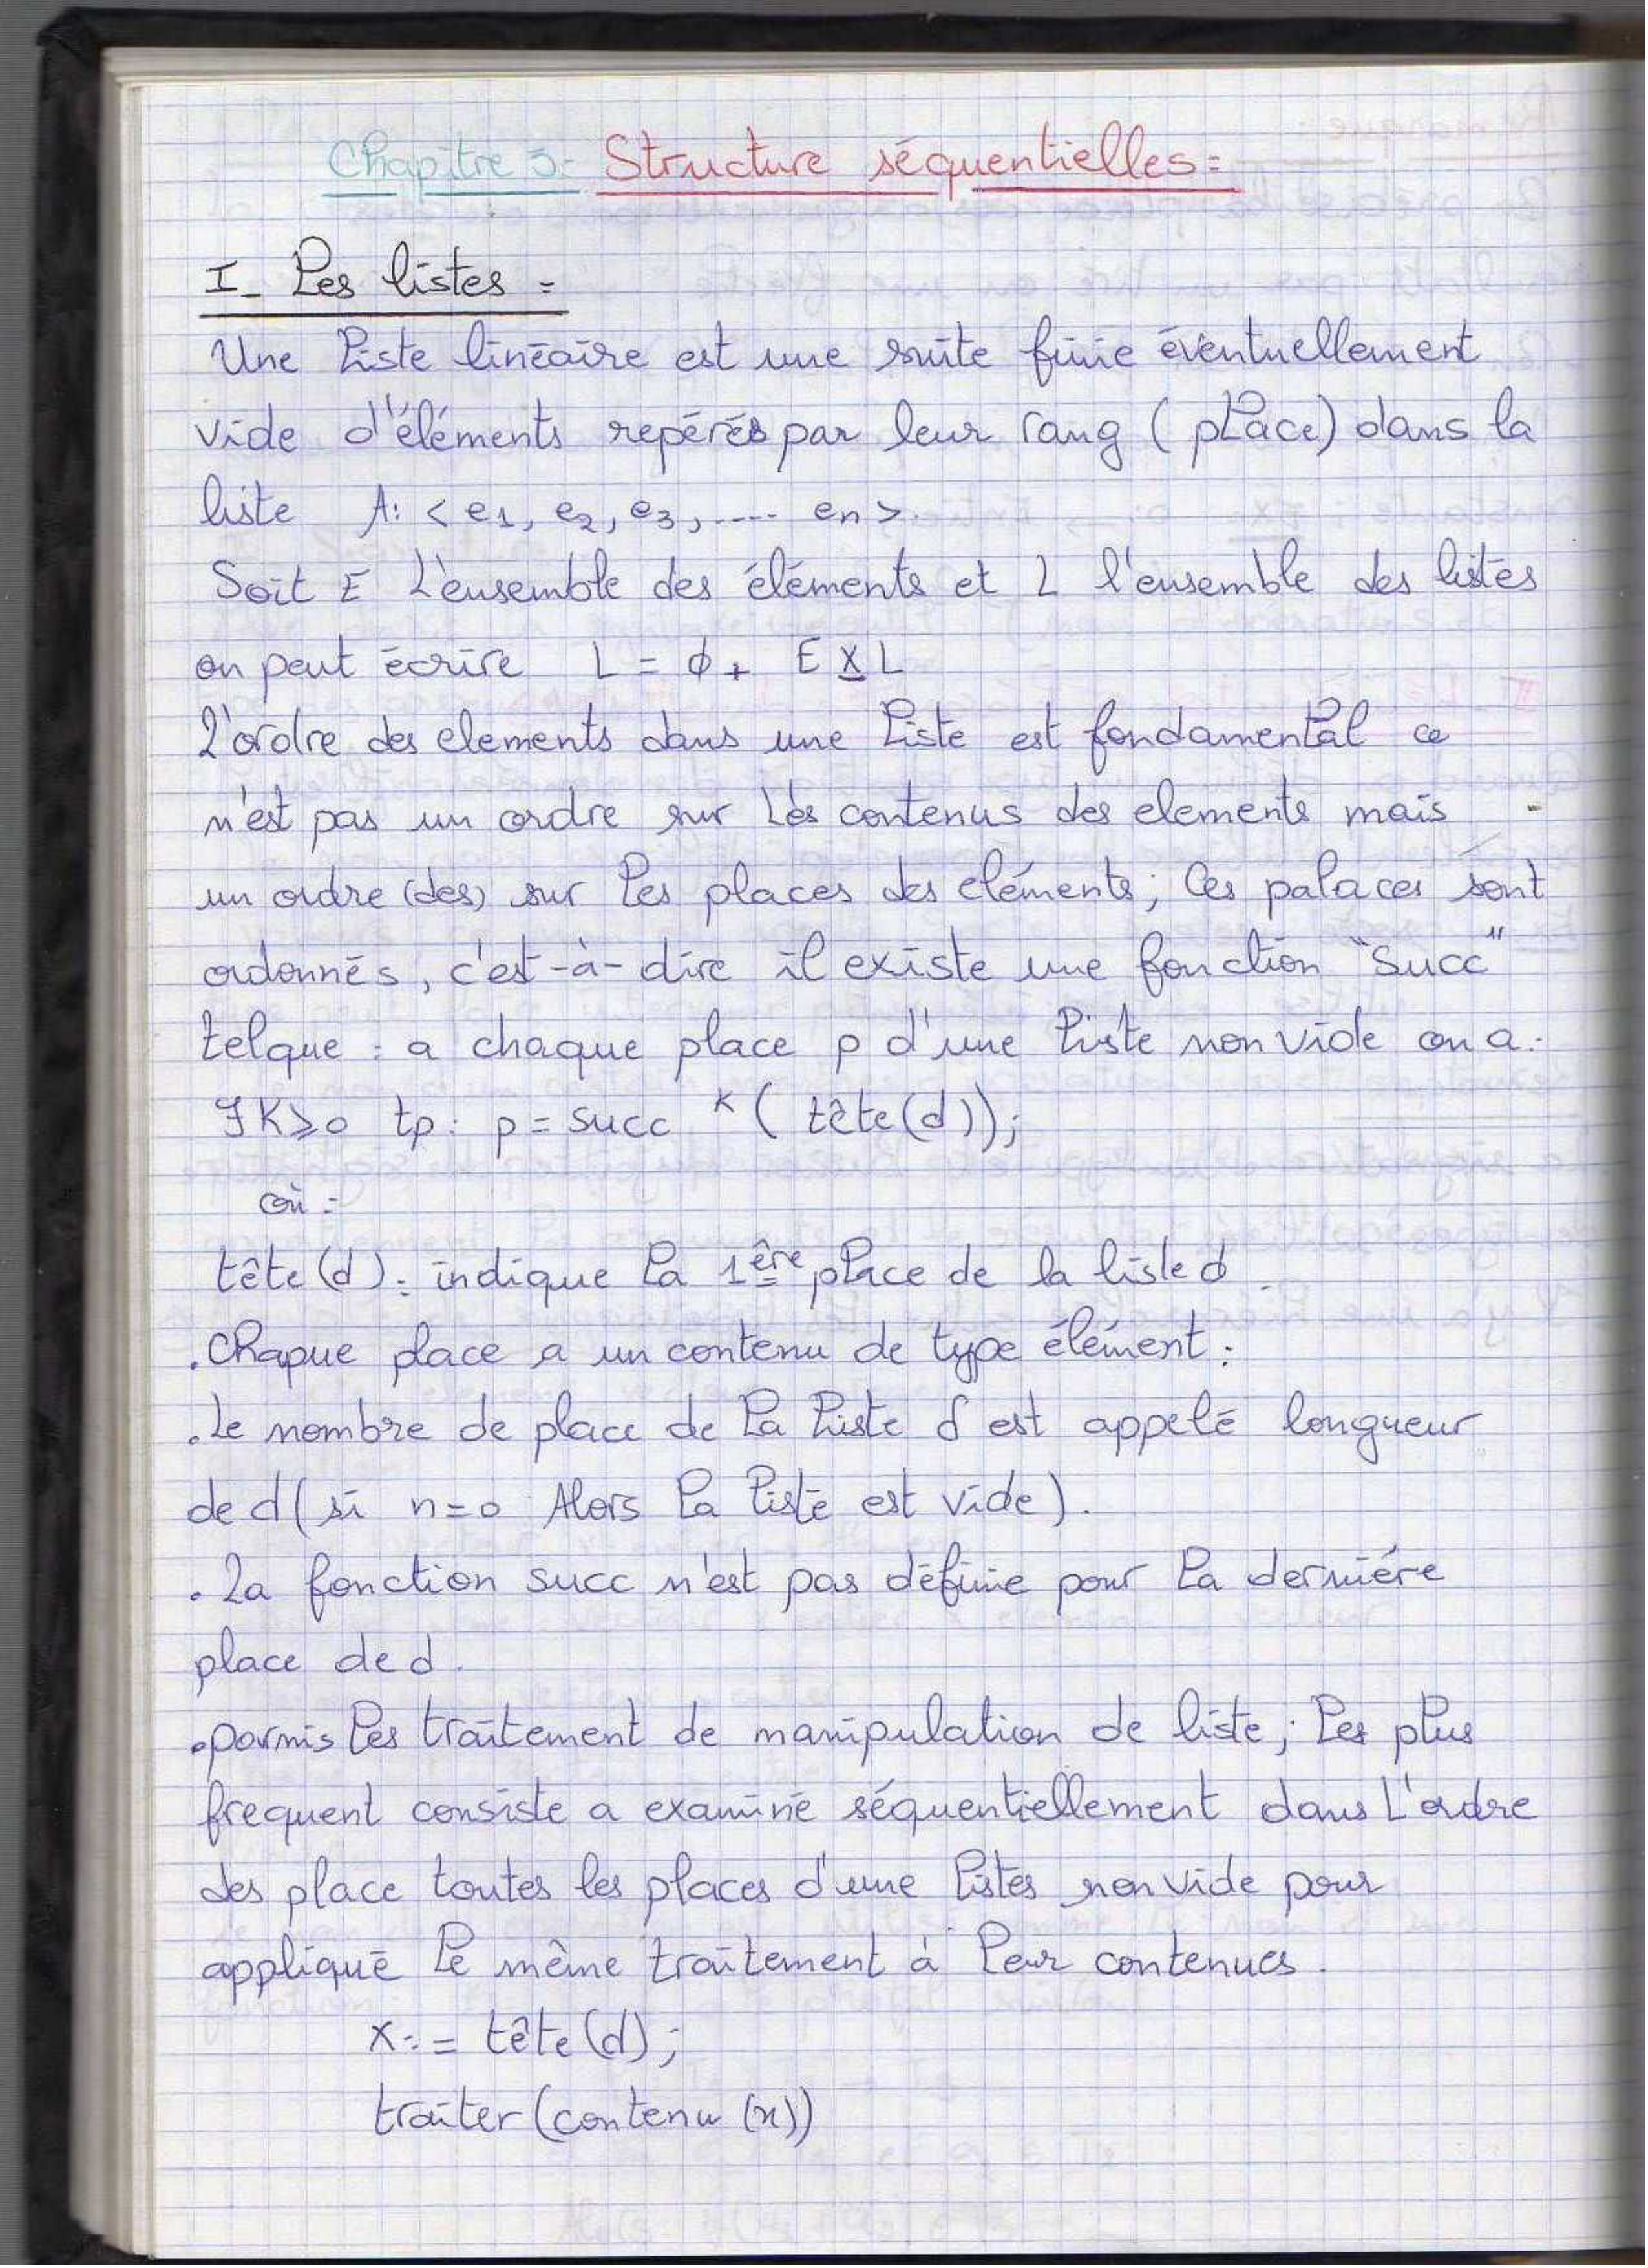 Chapitre 3: Structure séquentielles:
I- Les listes:
Une liste linéaire est une suite finie éventuellement
vide d'éléments repérés par leur rang (place) dans la
liste A: <e1, e2, e3, .... en>.
Soit E L'ensemble des éléments et L l'ensemble des listes
on peut écrire L = ϕ + E X L
L'ordre des elements dans une liste est fondamental ce
n'est pas un ordre sur Les contenus des elements mais
un ordre (des) sur les places des eléments; les palaces sont
ordonnés, c'est-à-dire il existe une fonction "Succ"
telque: a chaque place p d'une liste non vide on a:
∃ K≥0 tp: p = succ ᴷ (tête(d));
où:
tête(d): indique la 1ère place de la liste d.
. Chaque place a un contenu de type élément:
. Le nombre de place de la liste d est appelé longueur
de d (si n=0 Alors la liste est vide).
. La fonction succ n'est pas définie pour la derniére
place de d.
. parmis les traitement de manipulation de liste; les plus
frequent consiste a examiné séquentiellement dans L'ordre
des place toutes les places d'une listes non vide pour
appliqué le même traitement à leur contenues.
x:= tête(d);
traiter(contenu(x))